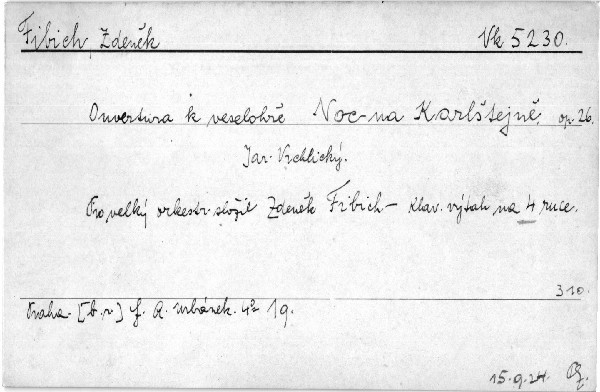 Fibich, Zdeněk Vk 5230.
Ouvertura k veselohře Noc na Karlštejně. op. 26.
Jar. Vrchlický.
Pro velký orkestr složil Zdeněk Fibich – Klav. výtah na 4 ruce.
310.
Praha. [b. r.] f. A. Urbánek. 4° 19.
15.9.24.